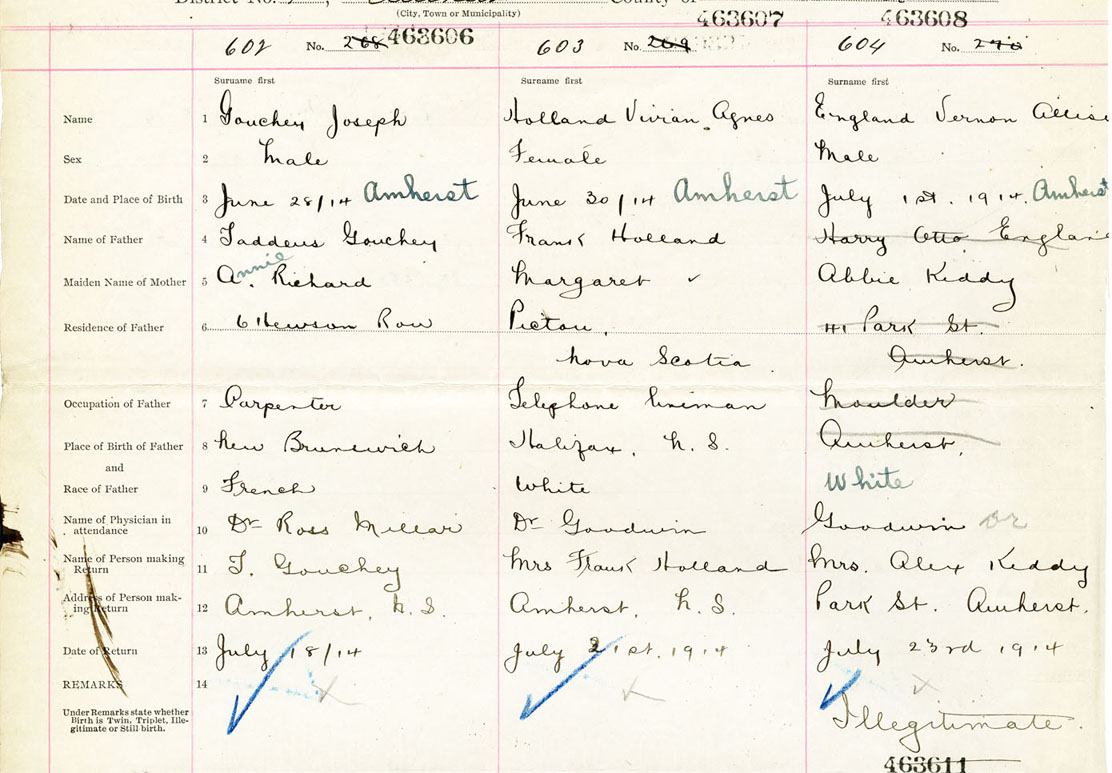 County of
(City, Town or Municipality)
463607 463608
602 No. 268 463606 603 No. 269 604 No. 270
Suruame first Surname first Surname first
Name 1 Gouchey Joseph Holland Vivian Agnes England Vernon Alliso
Sex 2 Male Female Male
Date and Place of Birth 3 June 28/14 Amherst June 30/14 Amherst July 1st. 1914. Amherst
Name of Father 4 Taddeus Gouchey Frank Holland Harry Otto England
Maiden Name of Mother 5 A. Annie Richard Margaret ✓ Abbie Keddy
Residence of Father 6 6 Hewson Row Pictou, 41 Park St.
Nova Scotia Amherst.
Occupation of Father 7 Carpenter Telephone lineman Moulder
Place of Birth of Father 8 New Brunswick Halifax, N. S. Amherst,
and
Race of Father 9 French White White
Name of Physician in
attendance 10 Dr Ross Millar Dr Goodwin Goodwin Dr
Name of Person making
Return 11 T. Gouchey Mrs Frank Holland Mrs. Alex Keddy
Address of Person mak-
ing Return 12 Amherst, N.S. Amherst, N.S. Park St. Amherst.
Date of Return 13 July 18/14 July 21st. 1914 July 23rd 1914
REMARKS 14
Under Remarks state whether
Birth is Twin, Triplet, Ille-
gitimate or Still birth.
Illegitimate.
463611